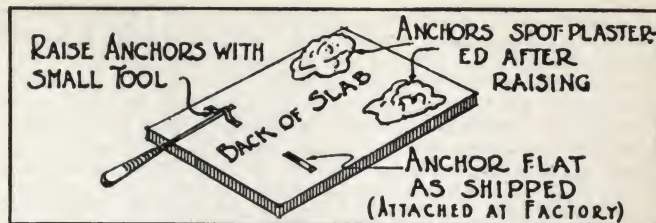 RAISE ANCHORS WITH
SMALL TOOL
ANCHORS SPOT-PLASTER-
ED AFTER
RAISING
BACK OF SLAB
ANCHOR FLAT
AS SHIPPED
(ATTACHED AT FACTORY)